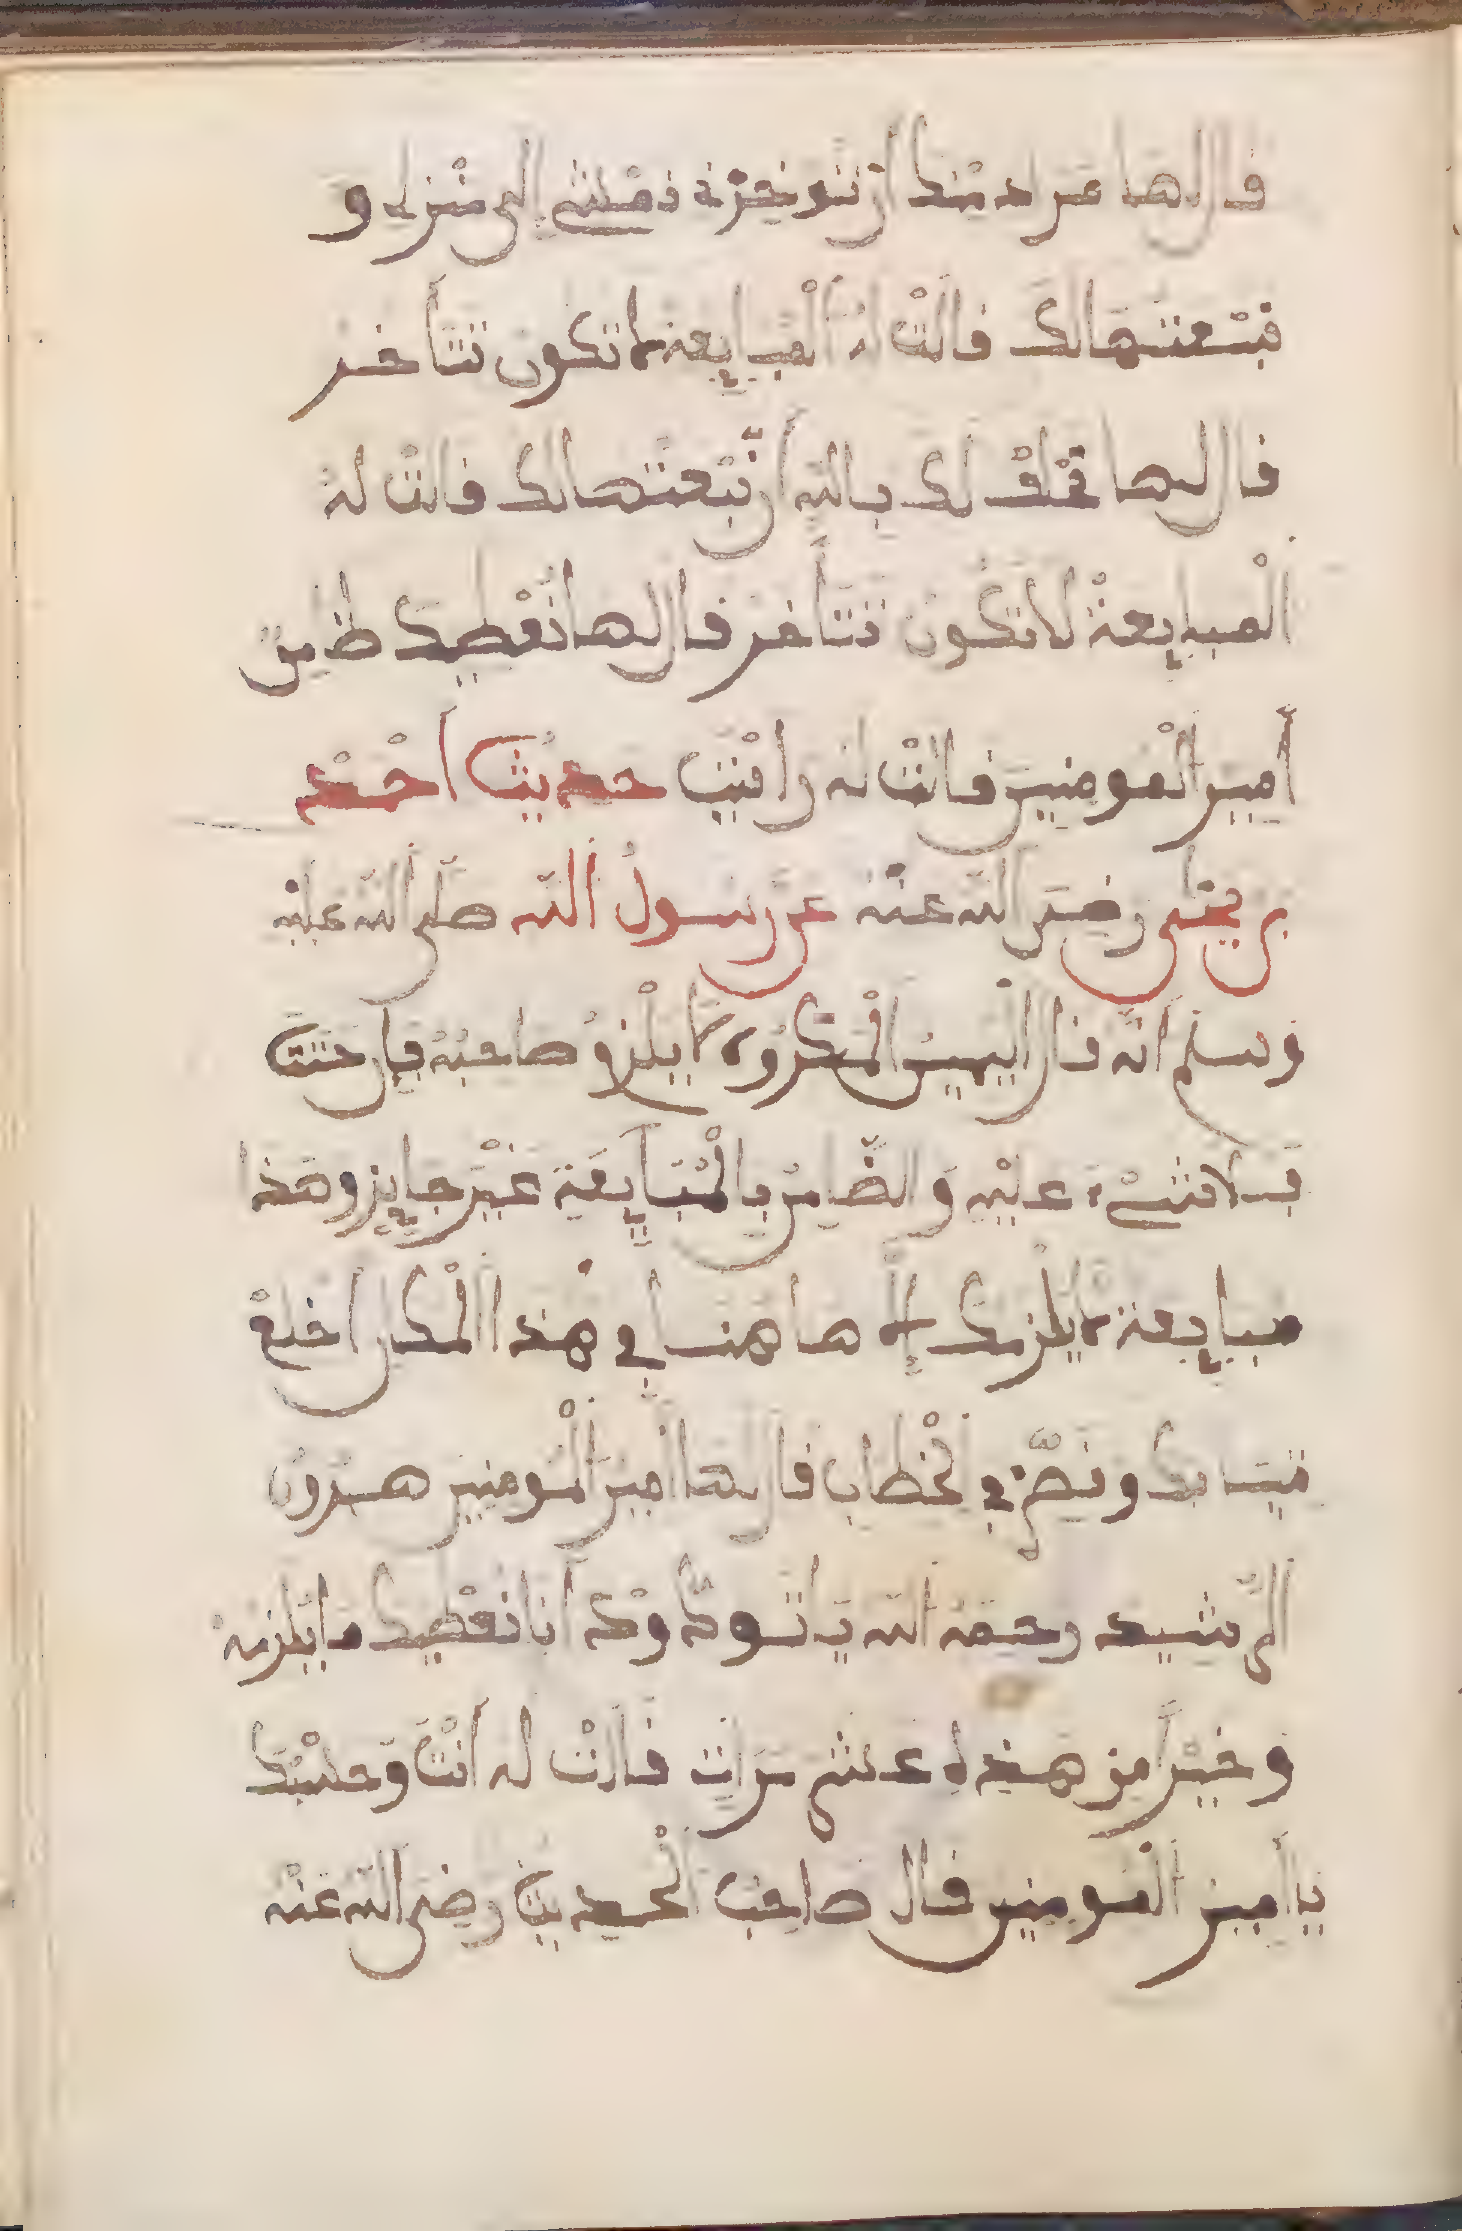 قال لها عن اد منك ان تو خرنه نمشي إلى منزلي و
نبعتها لك قالت له ألمبايعة لا تكون تتأخر
قال لها حلفت لك بالله أن نبعتها لك قالت له
ألمبايعة لا تكون تتأخر قال لها نعطيك ضامن
أمير ألمومنين قالت له وا متت حديث أحمد
بن يحيى رضي الله عنه عن رسول ألله صلى الله عليه
وسلم انه قال اليمين المكروه لا يلزم صاحبه فإن حنث
فلا شيء عليه والضامن بالمبايعة غير جايز وهذا
مبايعة لا يلزمك إلا هاهنا في هذا المكان اخلع
ثيابك ونص في الخطاب قال لها أمير ألمومنين هرون
ألرشيد رحمه الله يا تودد وحد أنا نعطيك ما يلزمه
وخيرا من هذه عشر مرات قالت له أنت وحسبك
يا أمير ألمومنين قال صاحب ألحديث رضي الله عنه